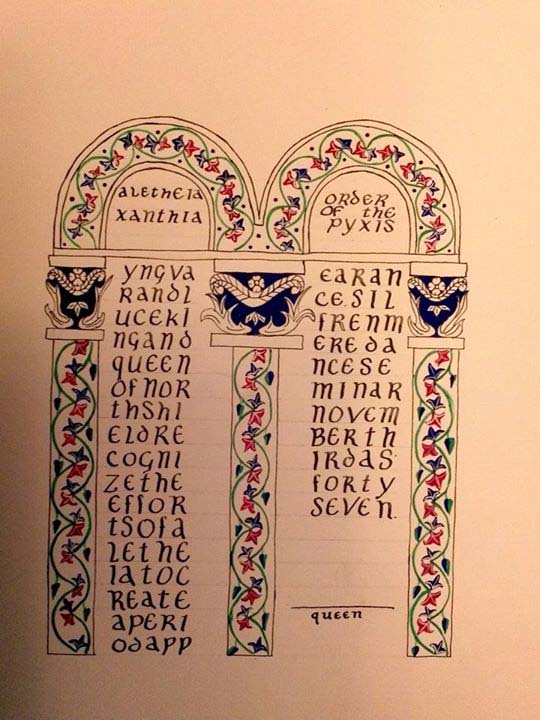 aLetheia
xanthia
order
of the
pyxis
yngva
Randl
uceki
ngand
queen
ofnor
thshi
eldre
cogni
zethe
effor
tsofa
Lethe
iatoc
Reate
aperi
odapp
earan
ce.sil
frenm
ereda
ncese
minar
novem
Berth
irdas
forty
seven.
queen